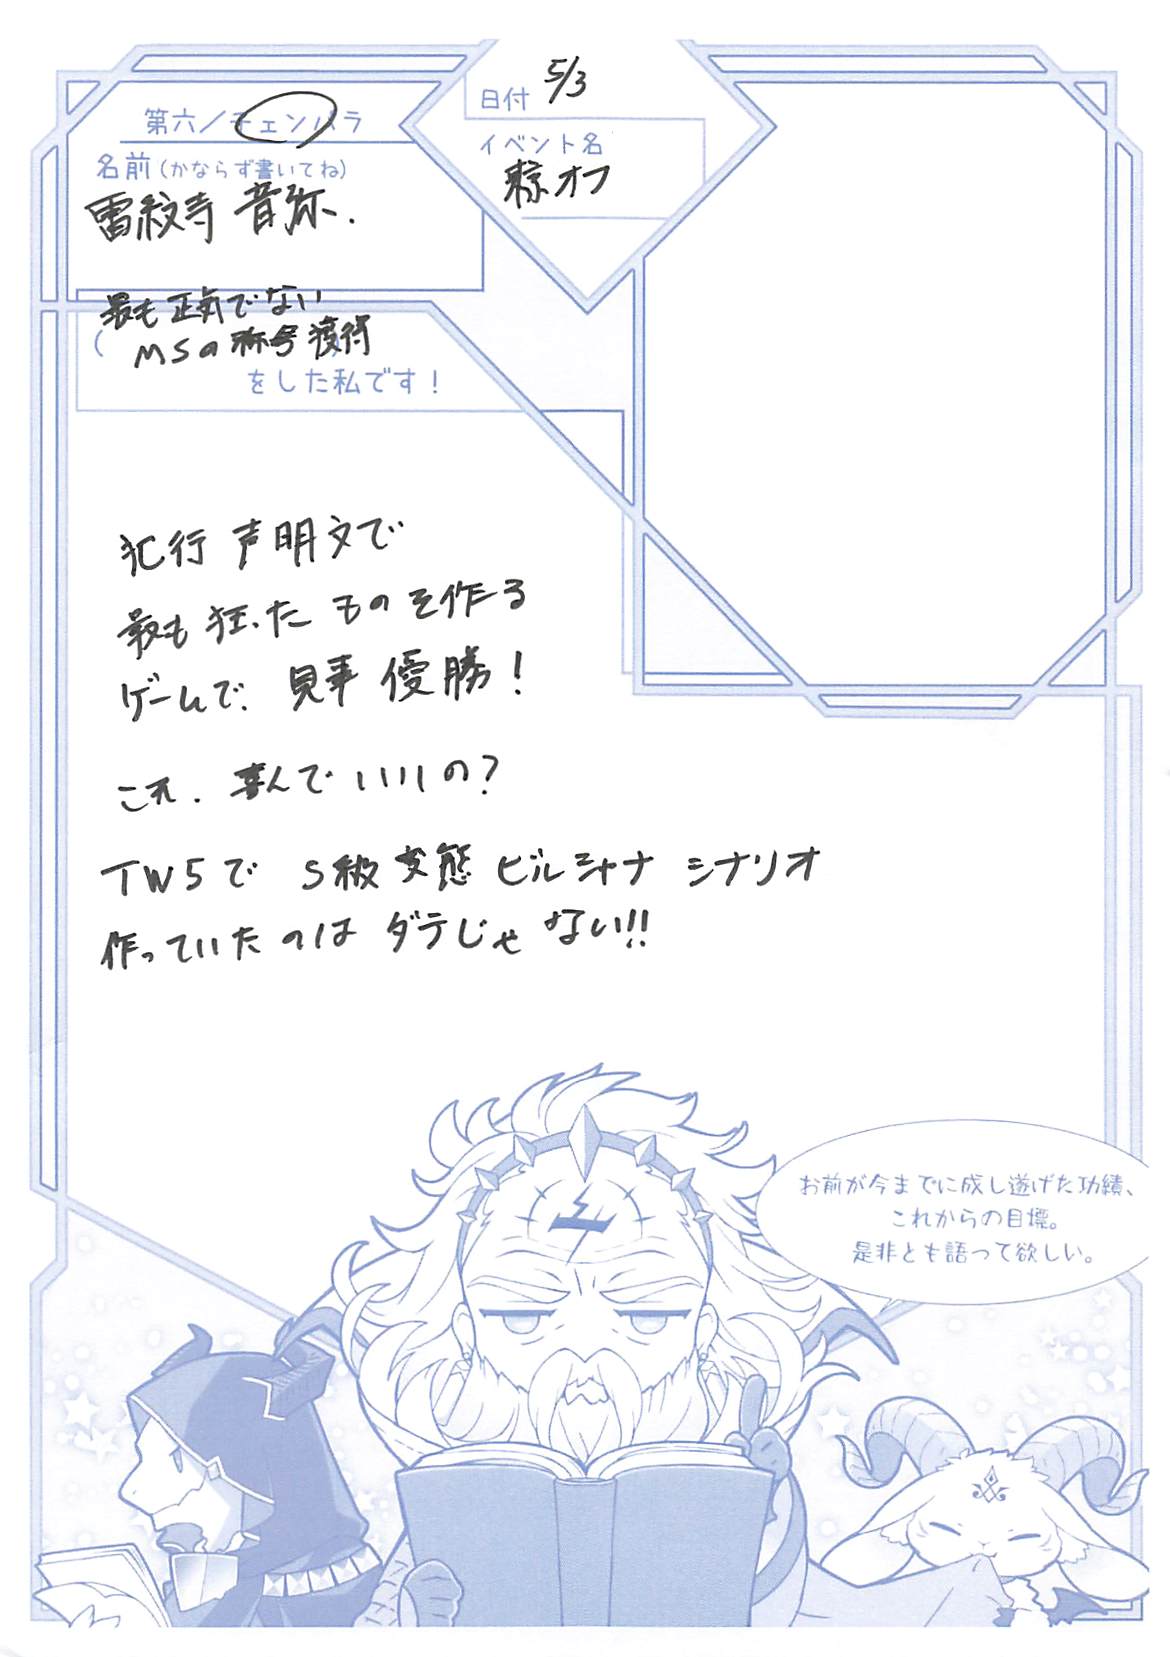 第六／チェンパラ
名前(かならず書いてね)
雷紋寺 音弥.
日付 5/3
イベント名
東京オフ
最も正気でない
( MSの称号獲得
をした私です！
犯行声明文で
最も狂った ものを作る
ゲームで、見事 優勝！
これ、喜んでいいの？
TW5で S級変態 ビルシャナ シナリオ
作っていたのは ダテじゃない!!
お前が今までに成し遂げた功績、
これからの目標。
是非とも語って欲しい。